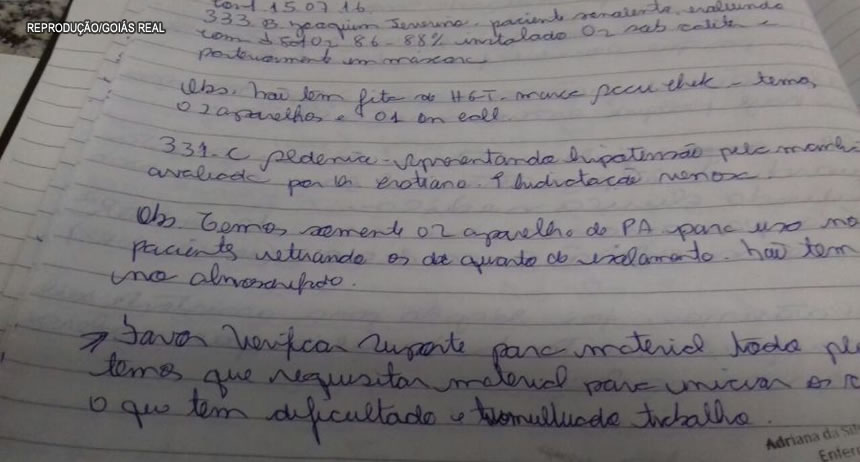 15.07.16
REPRODUÇÃO/GOIÁS REAL
333. B. Joaquim Severino, paciente sonolento, evoluindo
com ↓ SatO2 86-88% instalado O2 sob cateter e
posteriormente em mascara
Obs. não tem fita de HGT. marca Accu Chek - temos
02 aparelhos e 01 on call.
331. C - apresentando hipotensão pela manhã
avaliada por Dr. ↑ hidratação venosa.
Obs. Temos somente 02 aparelho de PA para uso no
pacientes retirando os de quarto de isolamento. não tem
no almoxarifado.
→ Favor verificar suporte para material toda
temos que requisitar material para iniciar os
o que tem dificultado e tumultuado trabalho.
Adriana da Sil
Enfer